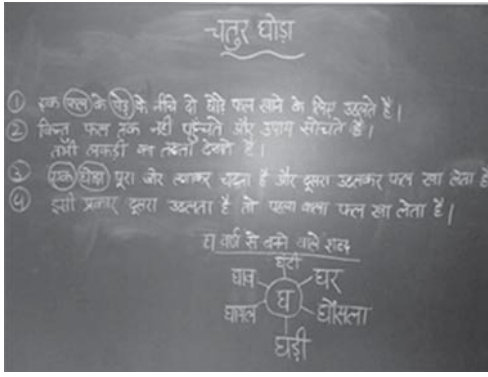 चतुर घोड़ा
① एक फल के पेड़ के नीचे दो घोड़े फल खाने के लिए उछलते हैं।
② किन्तु फल तक नहीं पहुँचते और उपाय सोचते हैं।
तभी लकड़ी का तख्ता देखते हैं।
③ एक घोड़ा पूरा जोर लगाकर चढ़ता है और दूसरा उछलकर फल खा लेता है
④ इसी प्रकार दूसरा उछलता है तो पहला वाला फल खा लेता है।
वर्ण से बनने वाले शब्द
घंटी
घाव
घर
घ
घायल
घोंसला
घड़ी